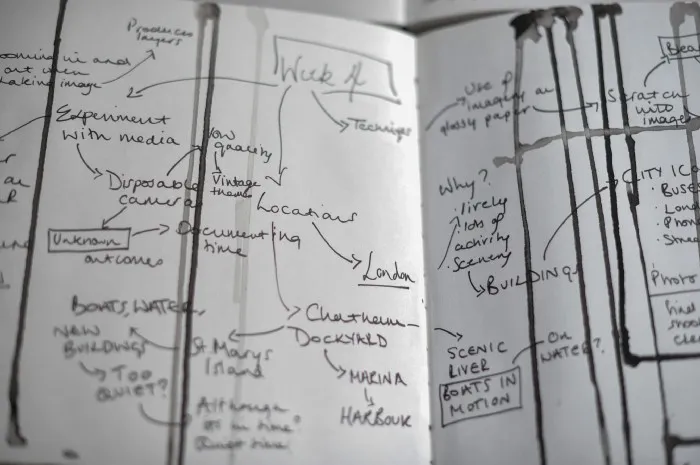 Produces
layers
ooming in and
out when
taking image
Week 4
Experiment
with media
Techniques
low
quality
Vintage
theme
Disposable
camera
Unknown
outcomes
Documenting
time
Locations
London
Chatham
DOCKYARD
MARINA
HARBOUR
St Marys
Island
BOATS, WATER,
NEW
BUILDINGS
TOO
QUIET?
Although
time
time
Use of
imagery on
glossy paper
Scratch
into
image
Bea
Why?
· lively
· lots of
activity
· Scenery
BUILDINGS
CITY ICO
· BUSE
· Lond
· Phon
· Stre
Photo
SCENIC
RIVER
ON
WATER?
BOATS IN
MOTION